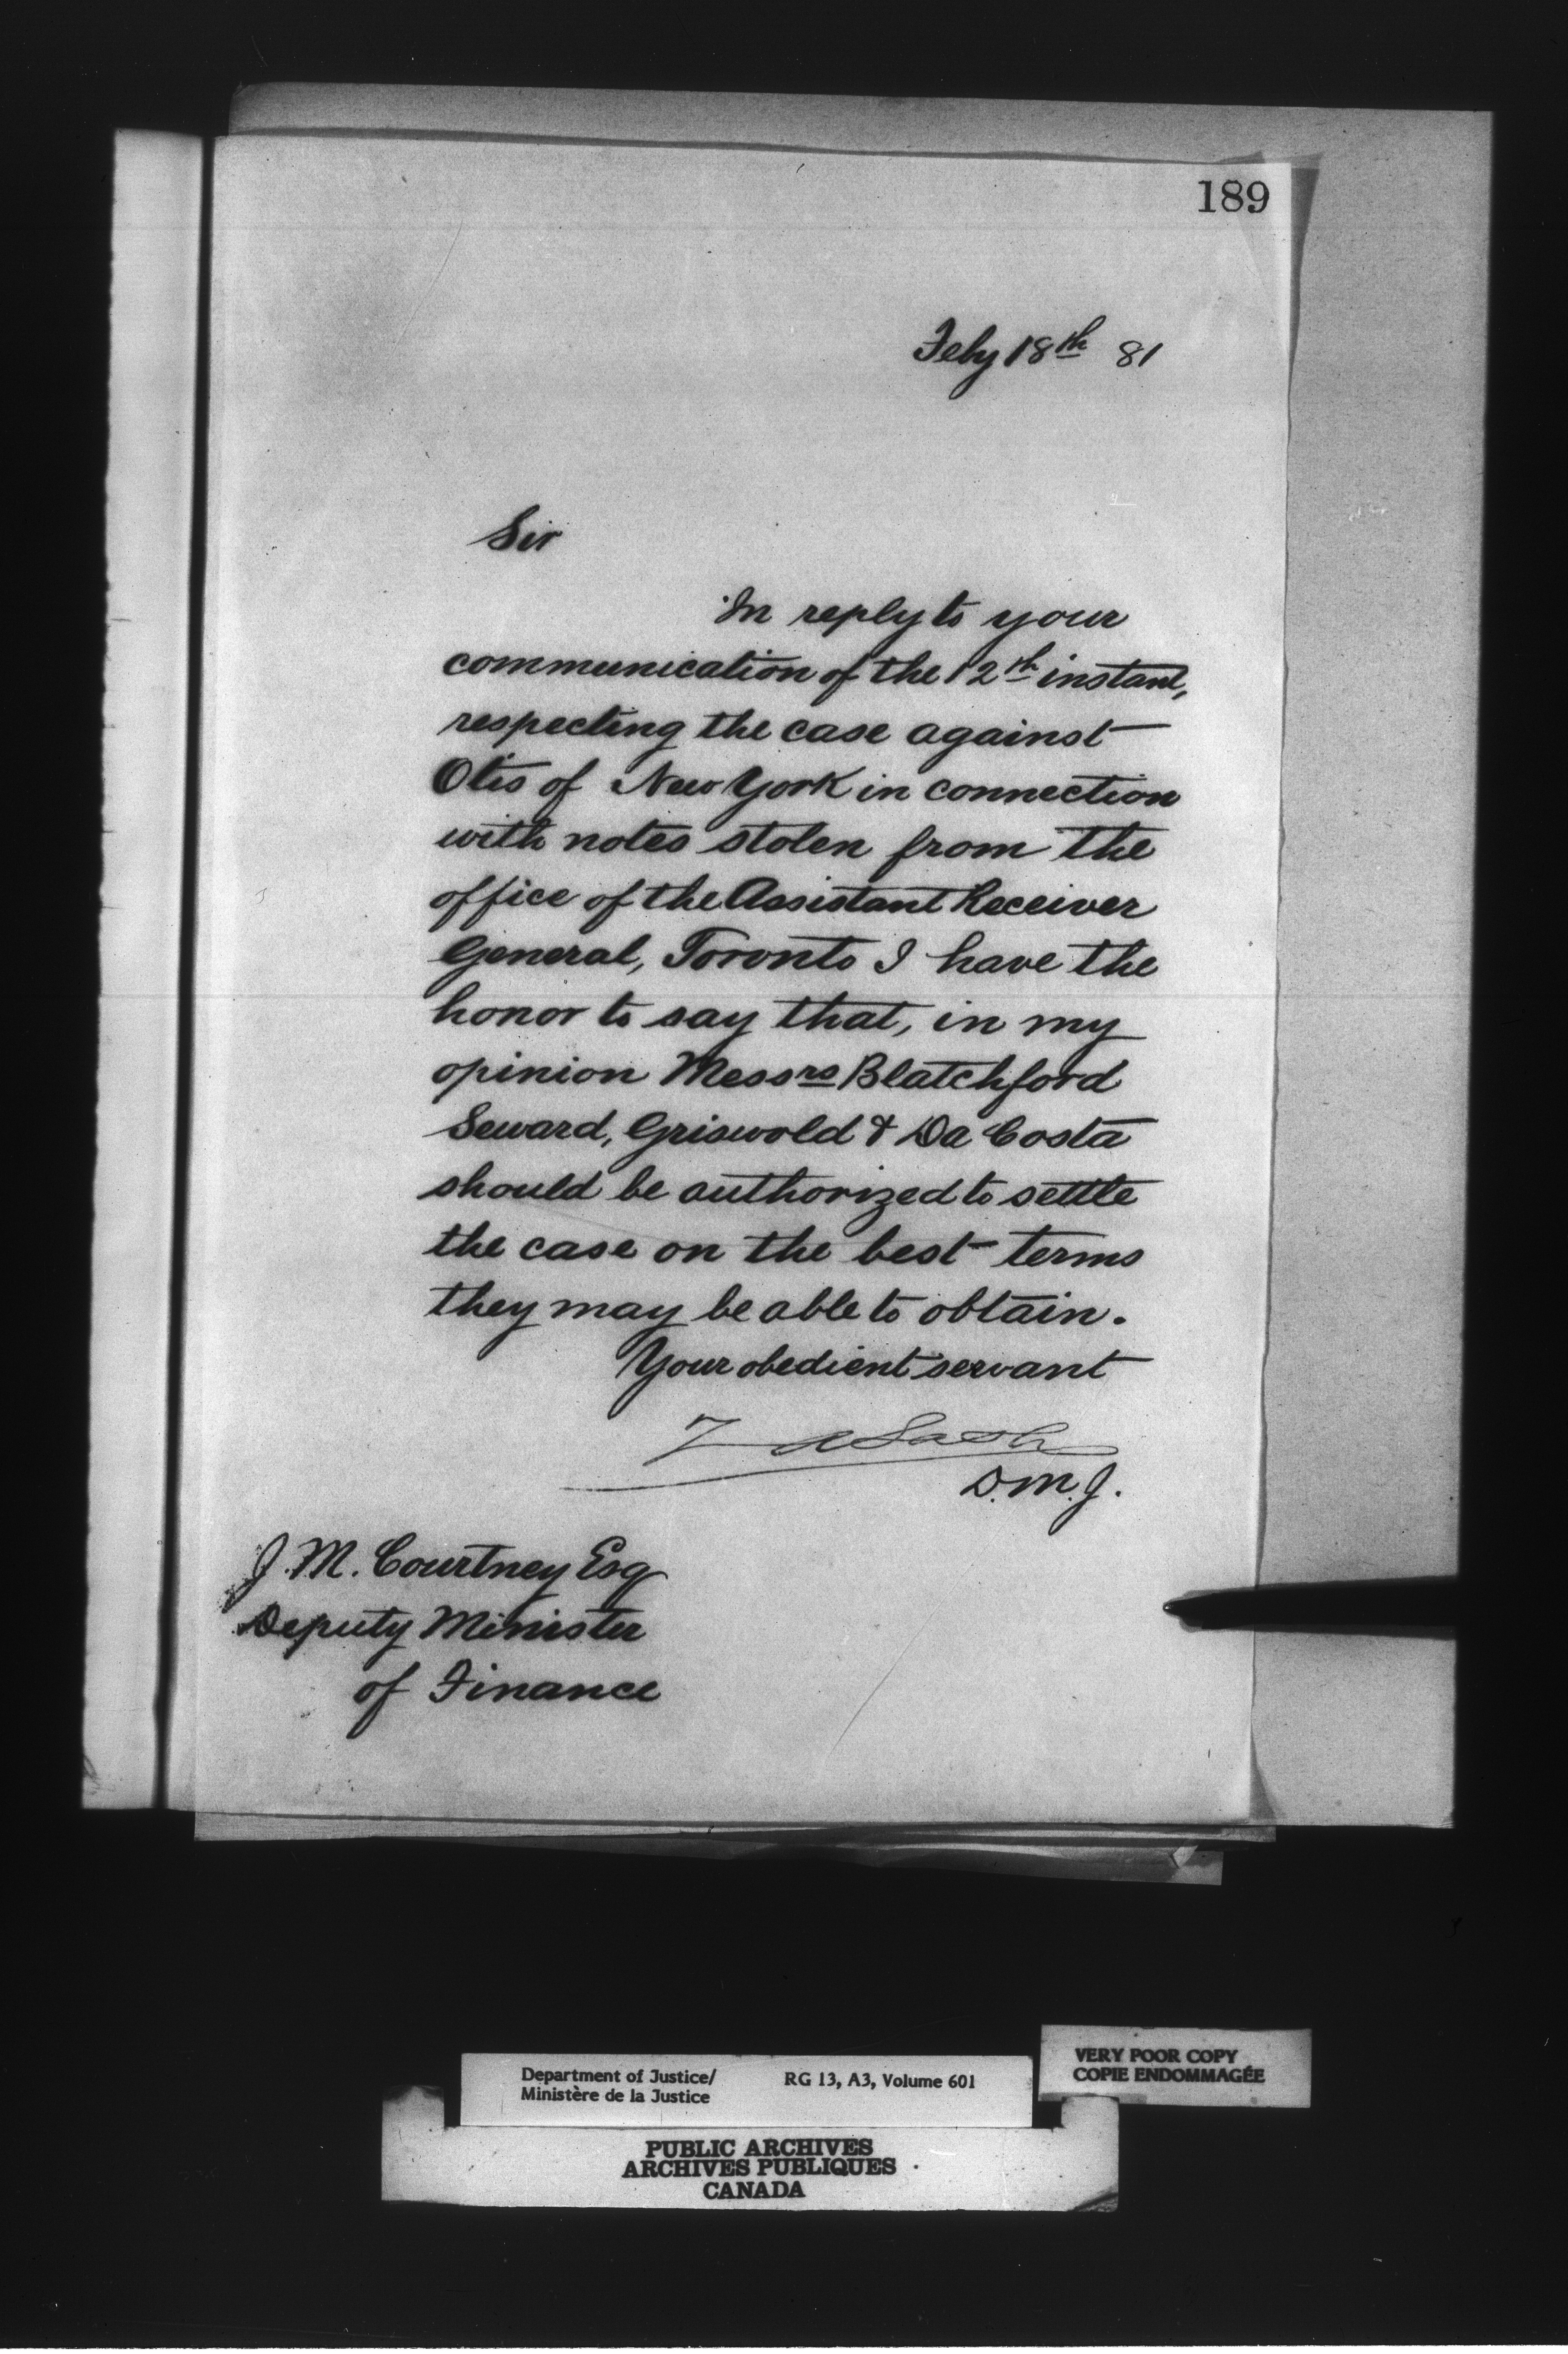 189
Feby 18th 81
Sir
In reply to your
communication of the 12th instant,
respecting the case against
Otis of New York in connection
with notes stolen from the
office of the Assistant Receiver
General, Toronto I have the
honor to say that, in my
opinion Messrs Blatchford
Seward, Griswold & Da Costa
should be authorized to settle
the case on the best terms
they may be able to obtain.
Your obedient servant
Z A Lash
D.M.J.
J. M. Courtney Esq
Deputy Minister
of Finance
Department of Justice/ RG 13, A3, Volume 601
Ministère de la Justice
VERY POOR COPY
COPIE ENDOMMAGÉE
PUBLIC ARCHIVES
ARCHIVES PUBLIQUES
CANADA